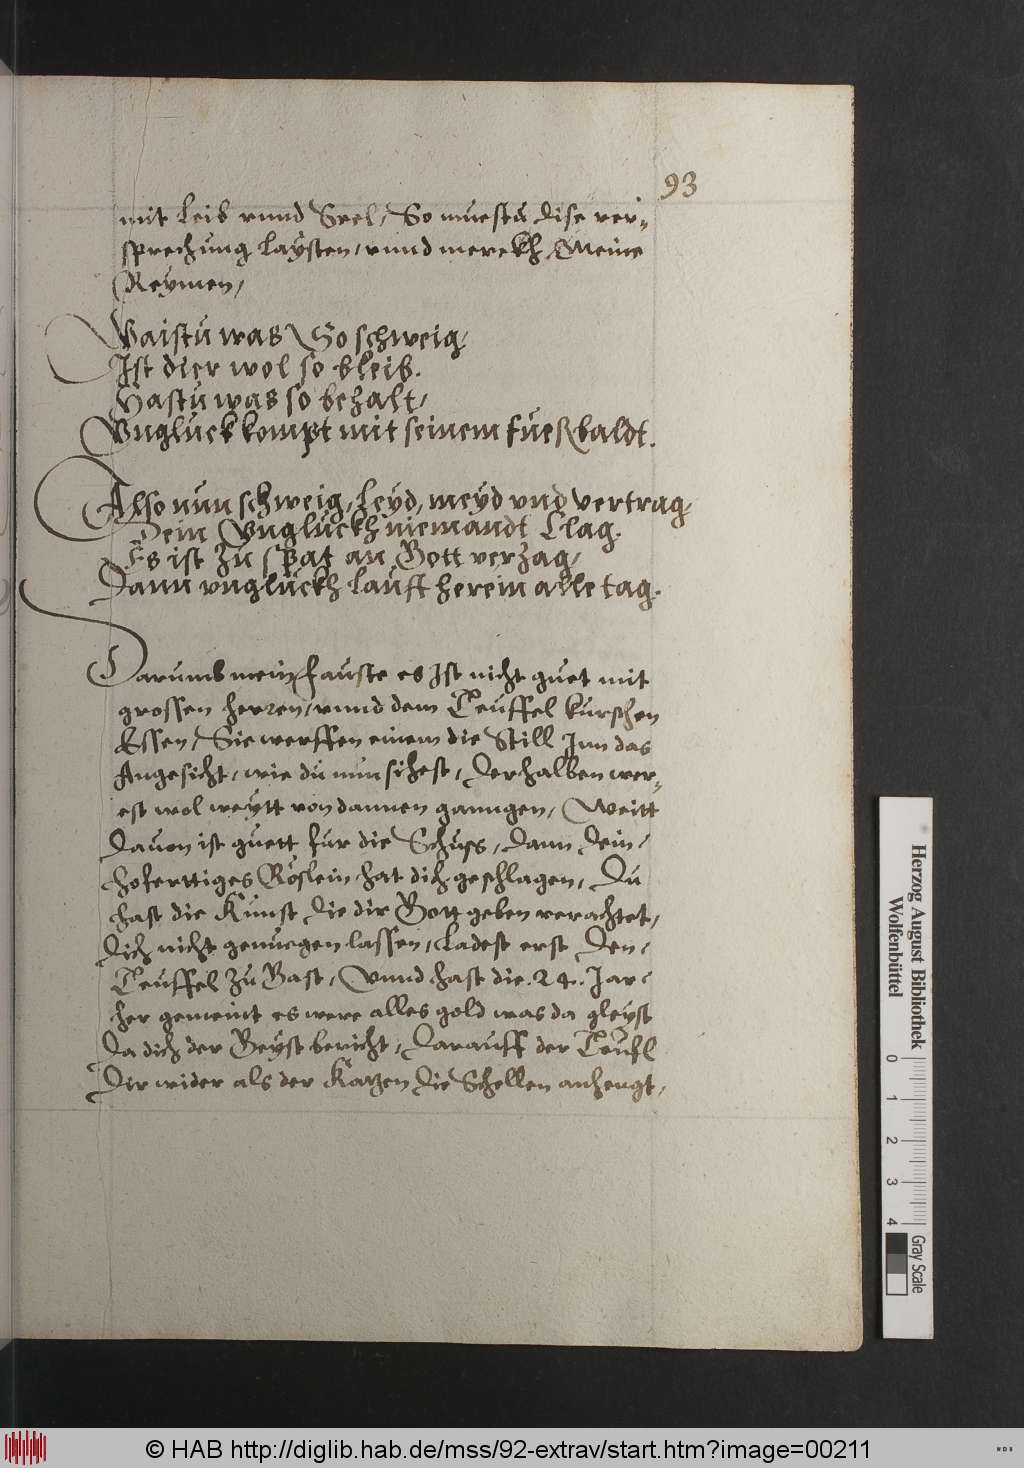 93
mit Leib vnnd Seel, So muestu dise ver-
sprechung laysten, vnnd merckh, Meine
Reymen,
Waistu was So schweig,
Ist dier wol so bleib.
Hastu was so behalt,
Vnglück kompt mit seinem fueß baldt.
Also nun schweig, leyd, meyd vnd vertrag,
Dein Vnglückh niemandt Clag.
Es ist zu spat an Gott verzag,
Dann vnglückh lauft herein alle tag.
Darumb mein fauste es Ist nicht guet mit
grossen herren, vnnd dem Teuffel kurschen
Essen, Sie werffen einem die Still Inn das
Angesicht, wie du nun sihest, derhalben wer-
est wol weytt von dannen ganngen, Weitt
dauon ist guett fur die Schuss, dann dein
hoferttiges Röslein hat dich geschlagen, Du
hast die Kunst die dir Gott geben verachtet,
dich nicht genuegen lassen, Ladest erst den
Teuffel zu Gast, Vnnd hast die .24. Jar
her gemeint es were alles gold was da gleyst
da dich der Geyst bericht, darauff der Teufl
dir wider als der Katzen die Schellen anhengt,
Herzog August Bibliothek
Wolfenbüttel
0 1 2 3 4
Gray Scale
© HAB http://diglib.hab.de/mss/92-extrav/start.htm?image=00211
WDB